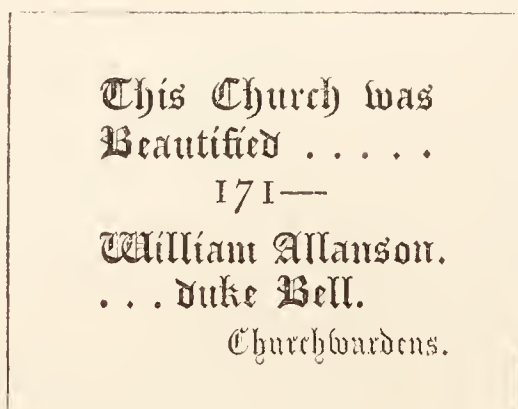 This Church was
Beautified . . . . .
171—
William Allanson.
. . . duke Bell.
Churchwardens.